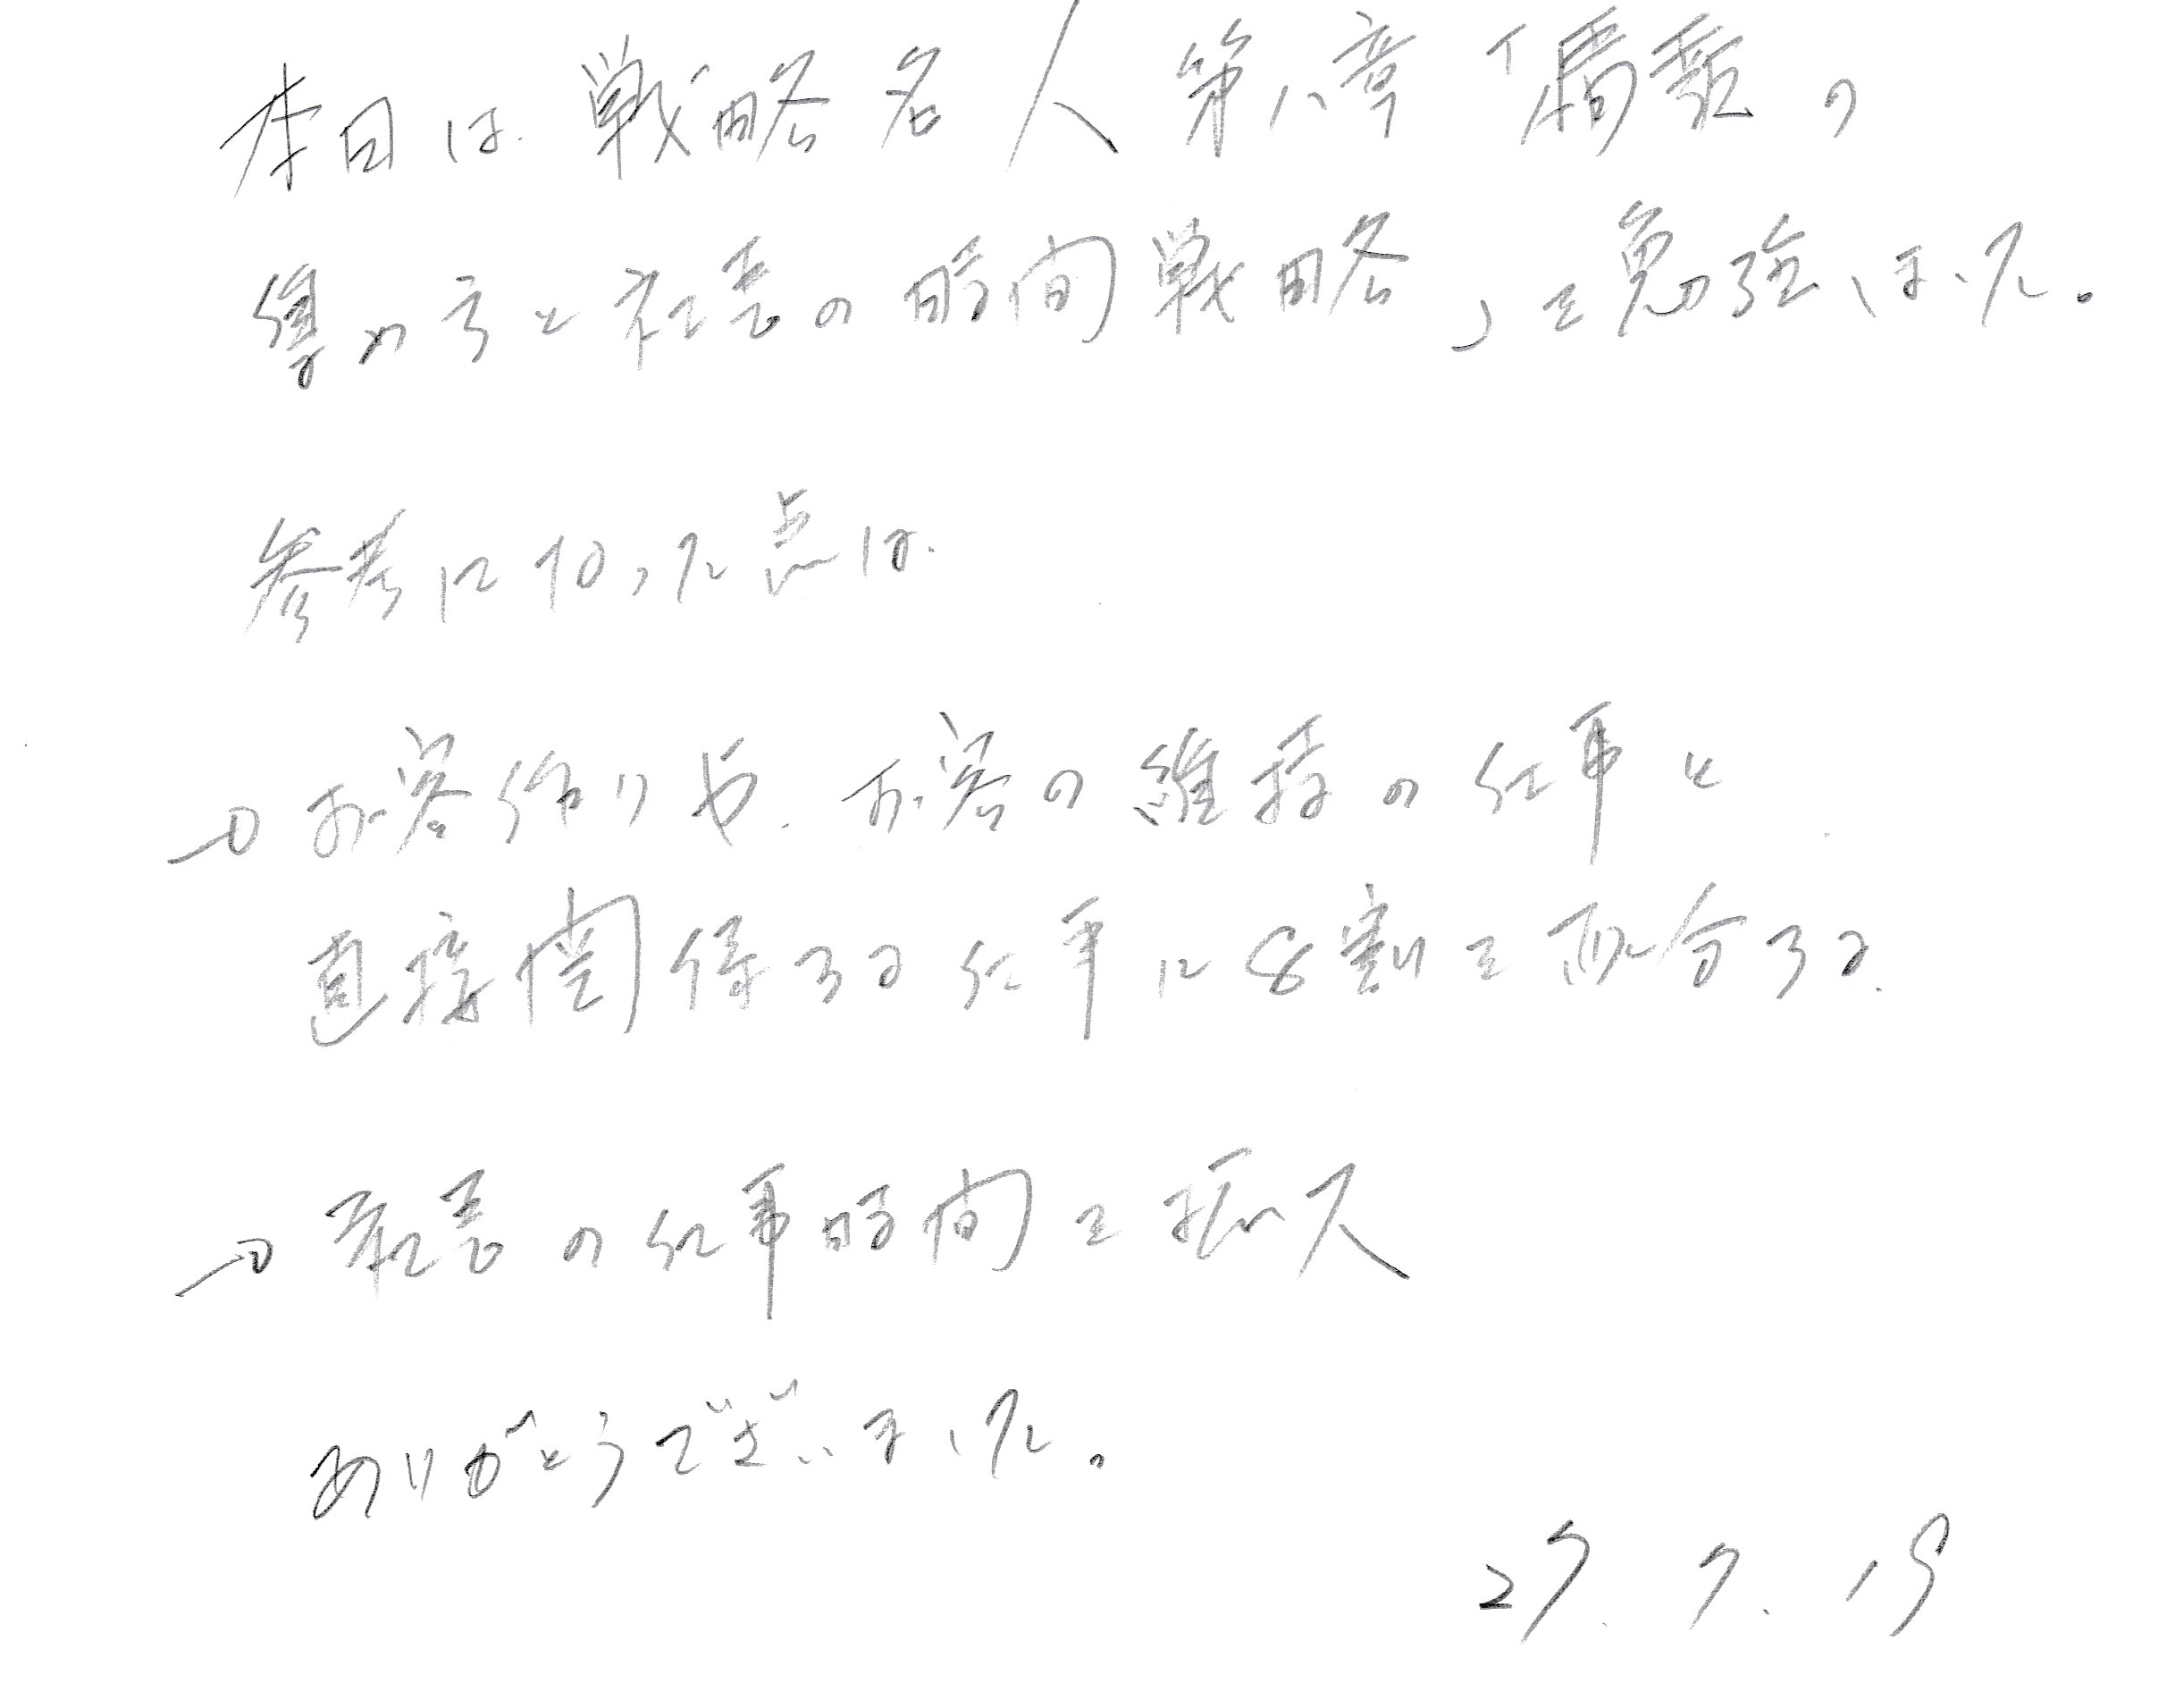 本日は戦略名人第八章「傭兵の
集め方と社長の時間戦略」を勉強しました。
参考になった点は
→お客作りや、お客の維持の仕事と
直接関係する仕事に8割を配分する
→社長の仕事時間を拡大
ありがとうございました。
27.7.19